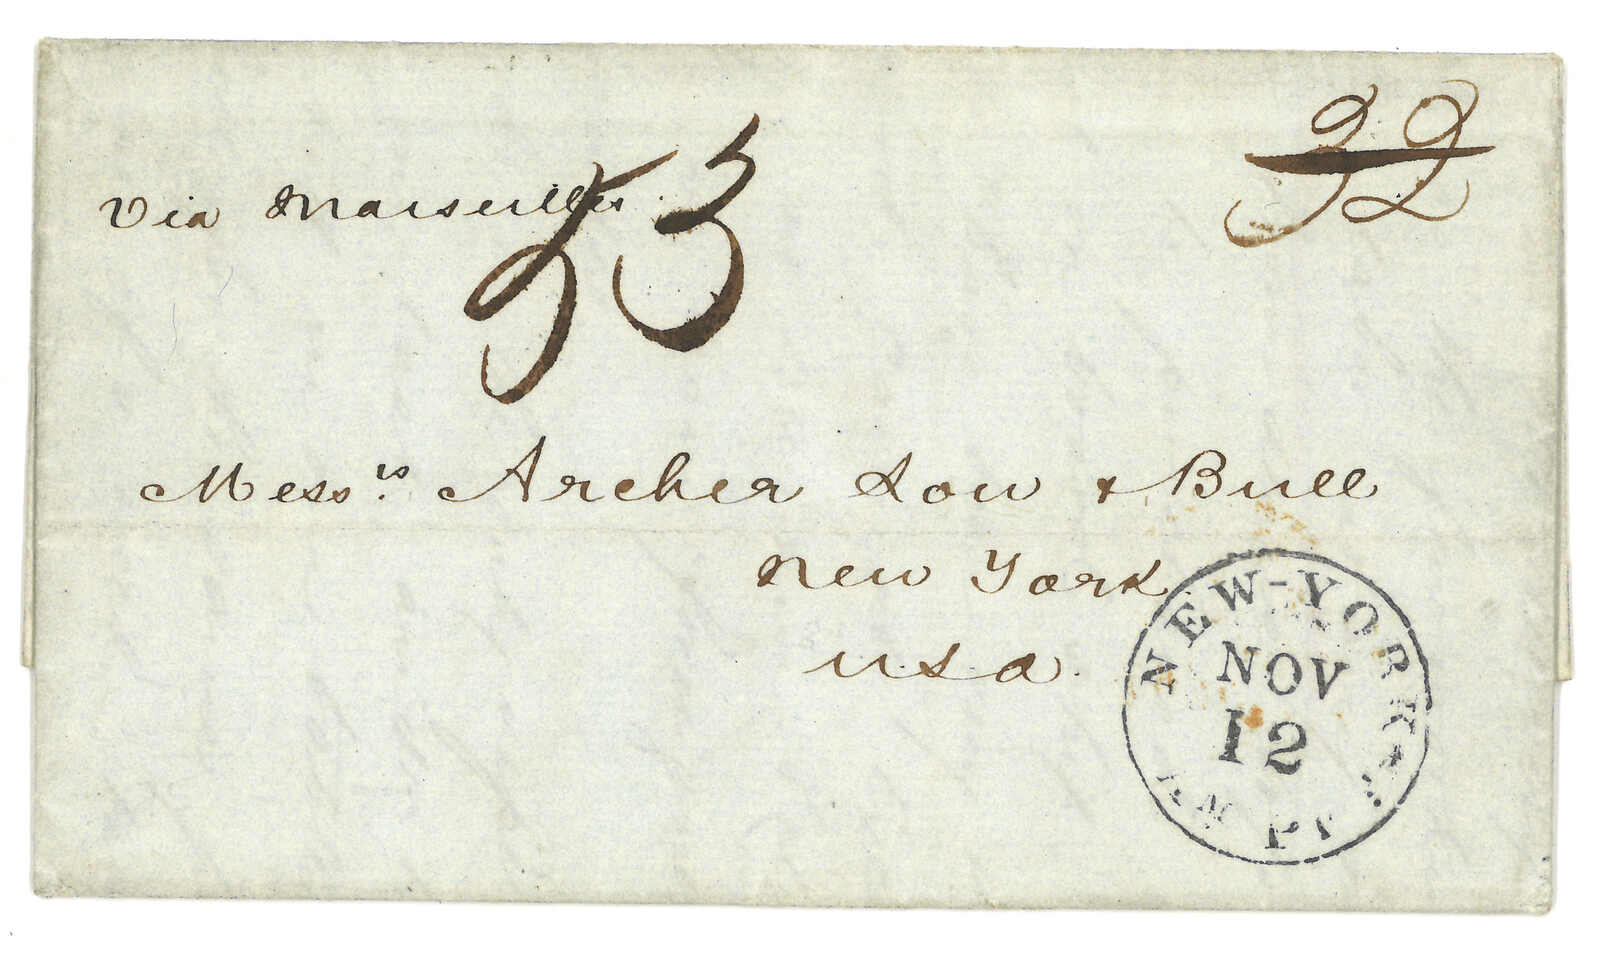 32
Via Marseilles
53
Messrs Archer Low & Bull
New York
USA
NEW-YORK
NOV
12
AM PKT